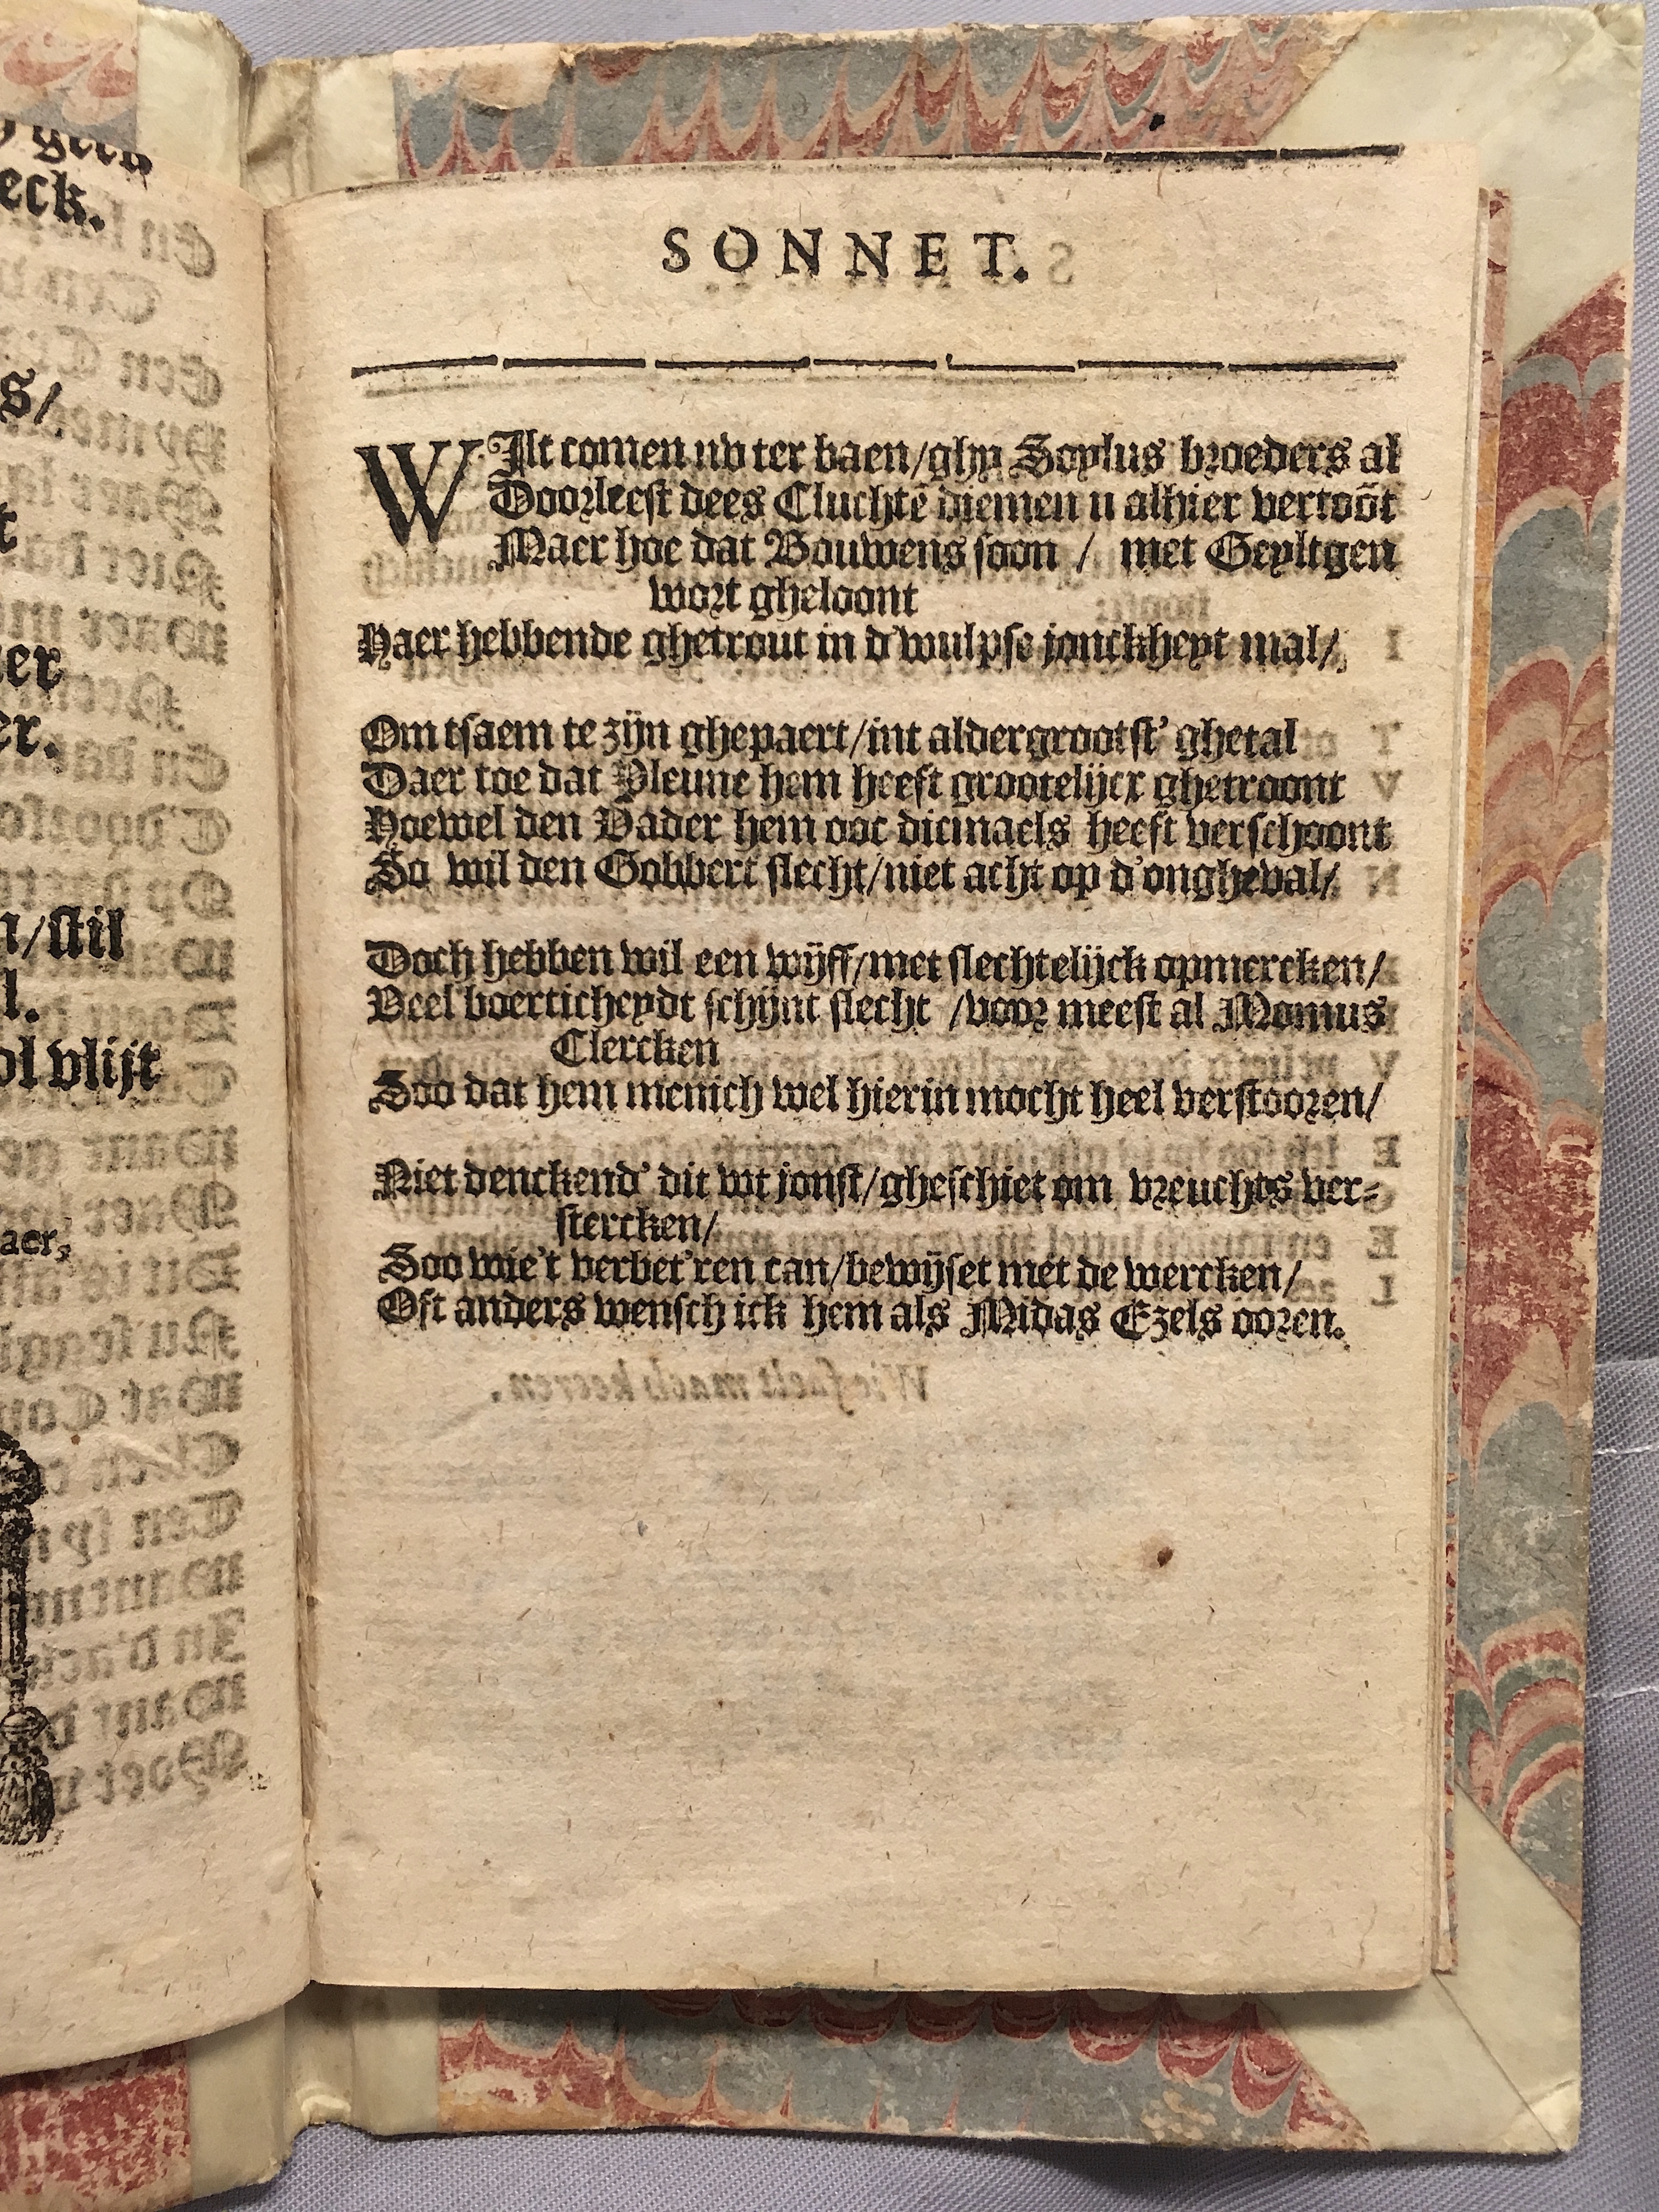 geen
eck.
S/
t
er
er.
n/stil
l.
ol vlijt
aer,
SONNET.
WIlt comen nv ter baen/ghy Soylus broeders al
Doorleest dees Cluchtẽ diemen u alhier vertoõt
Maer hoe dat Bouwens soon / met Geyltgen
wort gheloont
Haer hebbende ghetrout in d'wulpse jonckheyt mal/
Om tsaem te zijn ghepaert/int aldergrootst' ghetal
Daer toe dat Pleune hem heeft grootelijcx ghetroont
Hoewel den Vader hem ooc dicmaels heeft verschoont
So wil den Gobbert slecht/niet acht op d'ongheval/
Doch hebben wil een wijff/met slechtelijck opmercken/
Veel boerticheydt schijnt slecht /voor meest al Momus
Clercken
Soo dat hem menich wel hierin mocht heel verstooren/
Niet denckend' dit wt jonst/gheschiet om vreuchts ver-
stercken/
Soo wie't verbet'ren can/bewijset met de wercken/
Oft anders wensch ick hem als Midas Ezels ooren.